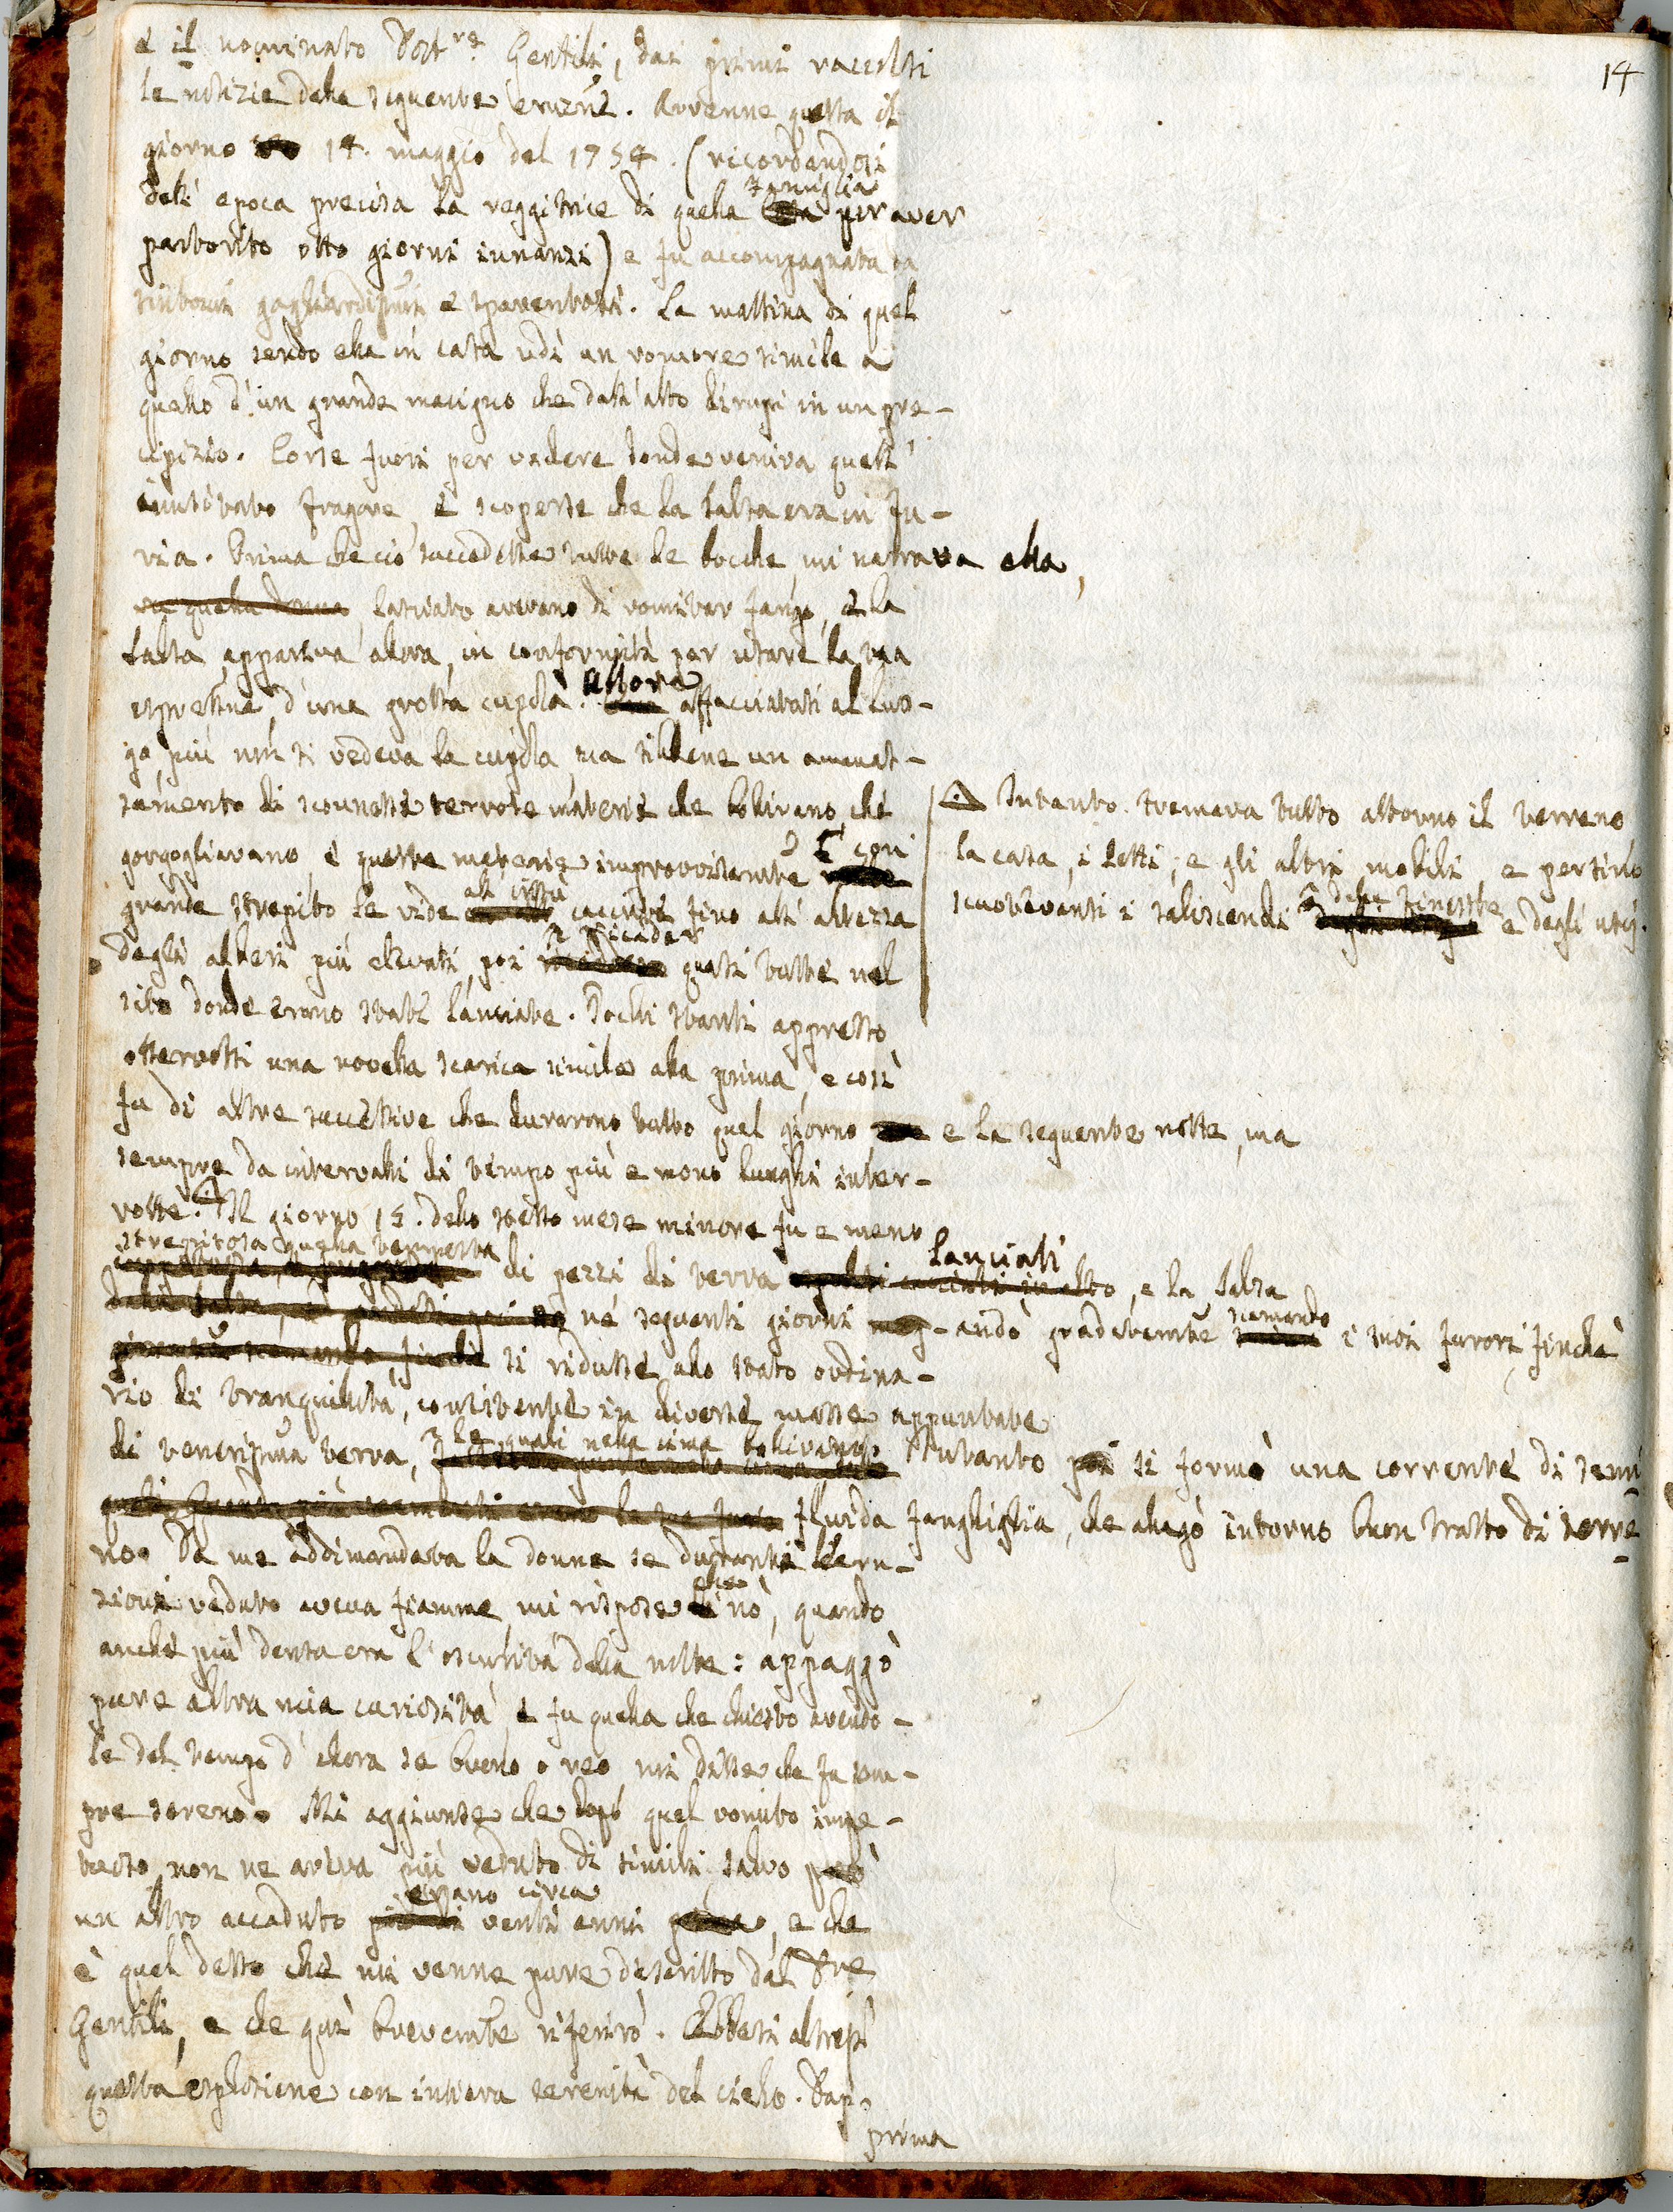 14
e il nominato Dott.re Gentili, dai primi raccolsi
le notizie della seguente eruzne. Avvenne questa il
giorno 14. maggio del 1754. (ricordandosi
dell' epoca precisa la reggitrice di quella famiglia per aver
partorito otto giorni innanzi) e fu accompagnata da
sintomi gagliardissimi e spaventosi. La mattina di quel
giorno sendo ella in casa udì un romore simile a
quello d'un grande macigno che dall' alto dirupi in un pre-
cipizio. Corse fuori per vedere donde veniva quest'
inusitato fragore, e scoperse che la Salsa era in fu-
ria. Prima che ciò succedesse tutte le bocche, mi narrava ella,
lasciato avevano di vomitar fango, e la
Salsa appariva allora, in conformità per usare la sua
espressne, d'una grossa cupola. Allora affacciatasi al luo-
go, più non si vedeva la cupola, ma sibbene un ammas-
samento di sconnesse terrose materie che bollivano, che
gorgogliavano, e queste materie improvvisamte E con
grande strepito le vide all' insù cacciate fino all' altezza
degli alberi più elevati, poi ricader quasi tutte nel
sito donde erano state lanciate. Pochi istanti appresso
osservossi una novella scarica simile alla prima, e così
fu di altre successive che durarono tutto quel giorno, e la seguente notte, ma
sempre da intervalli di tempo più e meno lunghi inter-
rotte. Il giorno 15. dello stesso mese minore fu e meno
strepitosa quella tempesta di pezzi di terra lanciati, e la Salsa
ne' seguenti giorni andò gradatamte scemando i suoi furori, finchè
si ridusse allo stato ordina-
rio di tranquillità, consistente in diverse masse appuntate
di tenerissima terra, le quali nella cima bollivano. Intanto si formò una corrente di semi
fluida fanghiglia, che allagò intorno buon tratto di terre-
no. Da me addimandata la donna se durante l'eru-
zioni veduto aveva fiamme, mi rispose che nò, quando
anche più densa era l'oscurità della notte: appaggò
pure altra mia curiosità, e fu quella che chiesto avendo-
le del tempo d'allora se buono o reo, mi disse che fu sem-
pre sereno. Mi aggiunse che dopo quel vomito impe-
tuoso, non ne aveva più veduto di simili, salvo
un altro accaduto erano circa venti anni, e che
è quel desso che mi venne pure descritto dal Dre
Gentili, e che quì brevemte riferirò. Ebbesi altresì
questa esplosione con intiera serenità del cielo. Dap-
prima
Intanto tremava tutto attorno il terreno
la casa, i letti, e gli altri mobili, e persino
scuotevansi i saliscendi delle finestre e degli uscj.